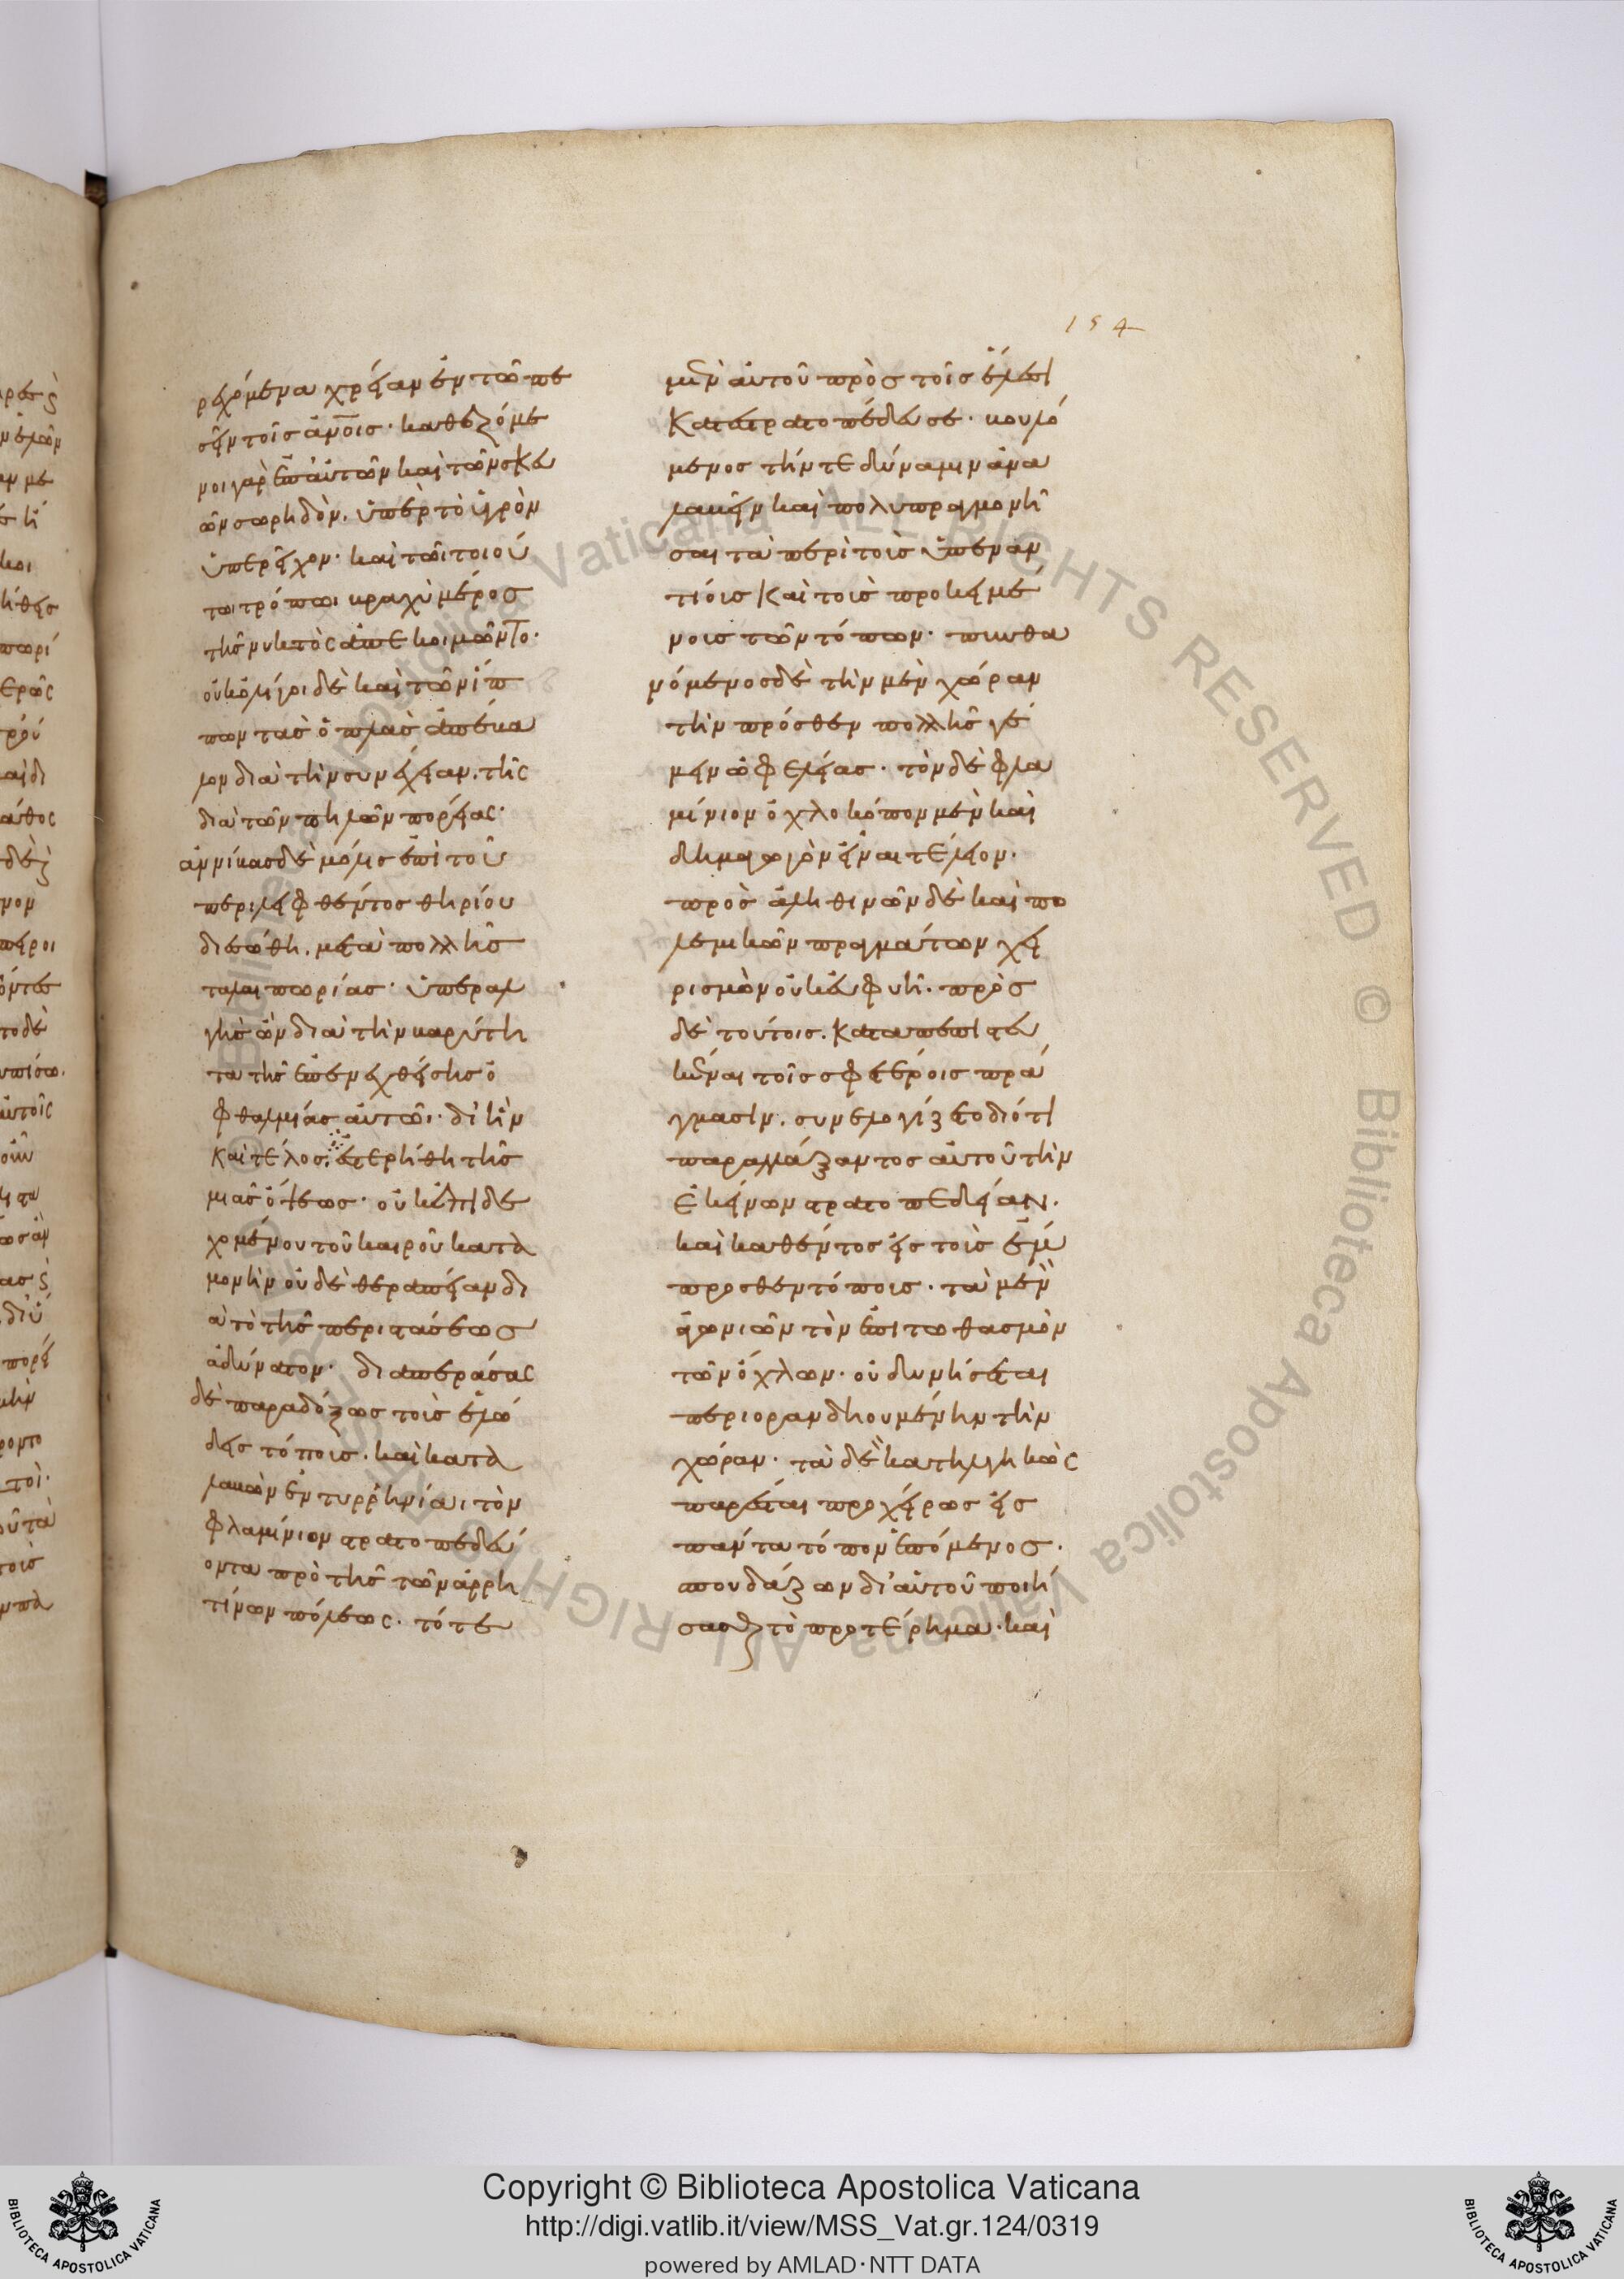 ρεχόμενα χρείαν ἐν τῶ πε
σεῖν τοῖς ἀν̅οις· καθεζόμε
νοι γὰρ ἐπ' αὐτῶν καὶ τῶν σκευ
ῶν σωρηδὸν. ὑπὲρ τὸ ὑγρὸν
ὑπερεῖχον· καὶ τῶι τοιού
τωι τρόπωι βραχὺ μέρος
τῆς νυκτὸς ἀπεκοιμῶντο·
οὐκ ὀλίγοι δὲ καὶ τῶν ἵπ
πων τὰς ὁπλὰς ἀπέβα
λον διὰ τὴν συνέχειαν. τῆς
διὰ τῶν πηλῶν πορείας·
ἀννίβας δὲ μόλις ἐπὶ τοῦ
περιλειφθέντος θηρίου
διεσώθη. μετὰ πολλῆς
ταλαιπωρίας· ὑπεραλ
γὴς ὢν διὰ τὴν βαρύτη
τα τῆς ἐπενεχθείσης ὀ
φθαλμίας αὐτῶι· δι' ἣν
καὶ τέλος. ἐστερήθη τῆς
μιᾶς ὄψεως· οὐκ ἐπιδε
χομένου τοῦ καιροῦ κατα
μονὴν οὐδὲ θεραπείαν δι
ὰ τὸ τῆς περιστάσεως
ἀδύνατον· διαπεράσας
δὲ παραδόξως τοὺς ἑλώ
δεις τόπους. καὶ κατα
λαβὼν ἐν τυρρηνίαι τὸν
φλαμίνιον στρατοπεδεύ
οντα πρὸ τῆς τῶν ἀρρη
τίνων πόλεως. τότε
154
μὲν αὐτοῦ πρὸς τοῖς ἕλεσι
κατεστρατοπέδευσε· βουλό
μενος τήν τε δύναμιν ἀνα
λαβεῖν καὶ πολυπραγμονῆ
σαι τὰ περὶ τοὺς ὑπεναν
τίους καὶ τοὺς προκειμέ
νους τῶν τόπων· πυνθα
νόμενος δὲ τὴν μὲν χώραν
τὴν πρόσθεν πολλῆς γέ
μειν ὠφελείας· τὸν δὲ φλα
μίνιον ὀχλοκόπον μὲν καὶ
δημαγωγὸν εἶναι τέλειον·
πρὸς ἀληθινῶν δὲ καὶ πο
λεμικῶν πραγμάτων χει
ρισμὸν οὐκ εὐφυῆ· πρὸς
δὲ τούτοις. καταπεπιστευ
κέναι τοῖς σφετέροις πρά
γμασιν. συνελογίζετο διότι
παραλλάξαντος αὐτοῦ τὴν
ἐκείνων στρατοπεδείαν.
καὶ καθέντος εἰς τοὺς ἔμ
προσθεν τόπους· τὰ μὲν
ἀγωνιῶν τὸν ἐπιτωθασμὸν
τῶν ὄχλων· οὐ δυνήσεται
περιορᾶν δηουμένην τὴν
χώραν· τὰ δὲ κατηλγηκὼς
παρέσται προχείρως εἰς
πάντα τόπον ἑπόμενος·
σπουδάζων δι' αὑτοῦ ποιή
σασθαι τὸ προτέρημα· καὶ
Copyright © Biblioteca Apostolica Vaticana
http://digi.vatlib.it/view/MSS_Vat.gr.124/0319
powered by AMLAD·NTT DATA
BIBLIOTECA APOSTOLICA VATICANA
BIBLIOTECA APOSTOLICA VATICANA